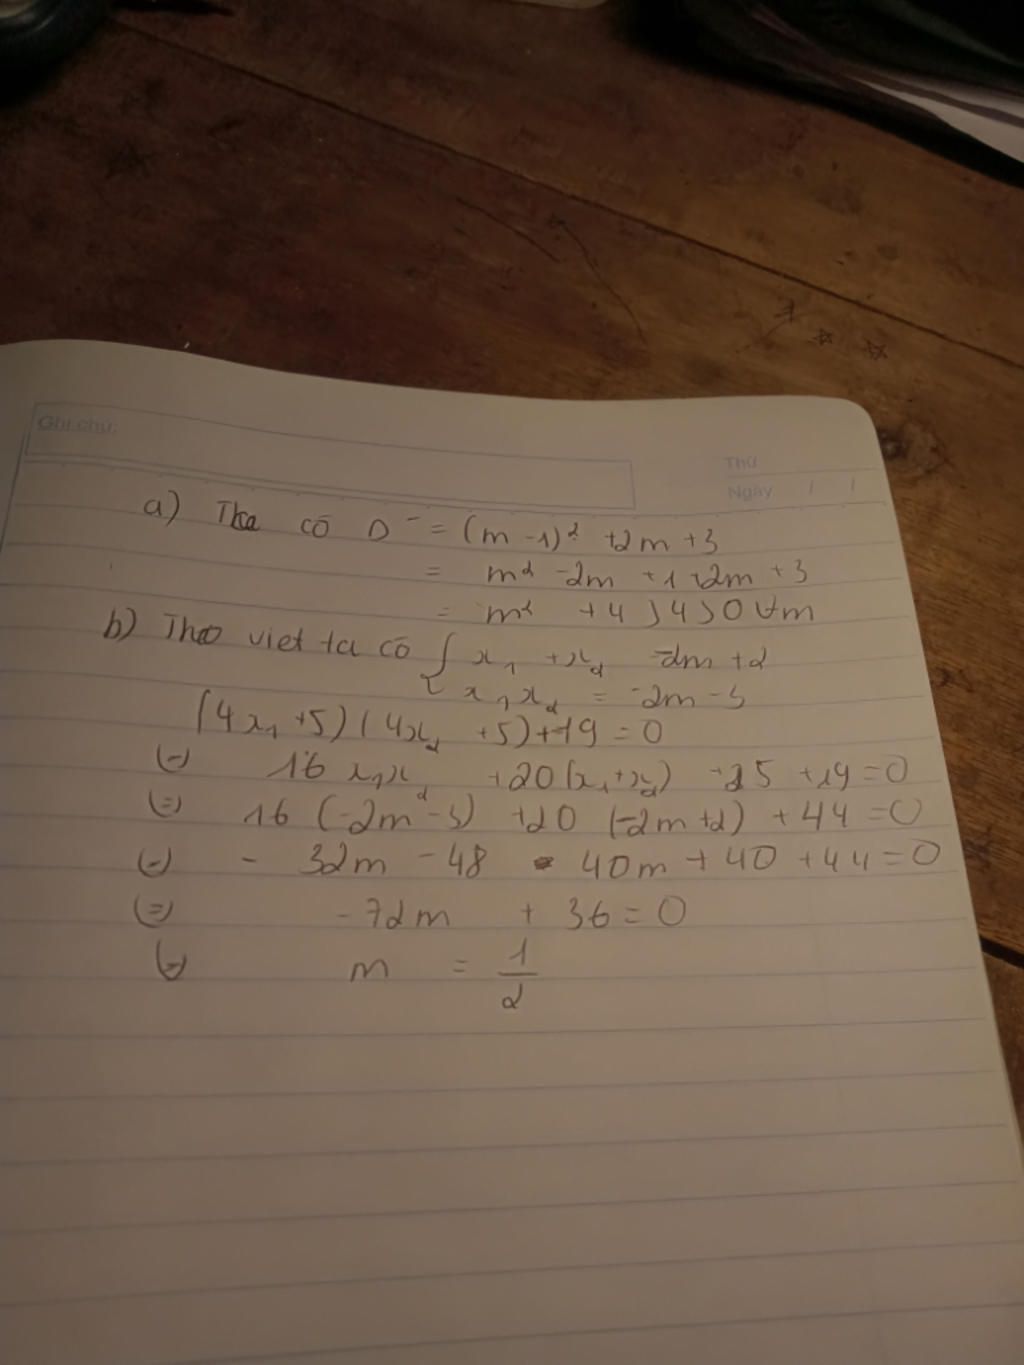 Ghi chú:
Thứ
Ngày / /
a) Ta có Δ' = (m - 1)² + 2m + 3
= m² - 2m + 1 + 2m + 3
= m² + 4 ≥ 4 > 0 ∀m
b) Theo viet ta có { x₁ + x₂ = -2m + 2
x₁x₂ = -2m - 3
(4x₁ + 5)(4x₂ + 5) + 19 = 0
(=) 16x₁x₂ + 20(x₁ + x₂) + 25 + 19 = 0
(=) 16(-2m - 3) + 20(-2m + 2) + 44 = 0
(=) - 32m - 48 - 40m + 40 + 44 = 0
(=) -72m + 36 = 0
(=) m = 1/2